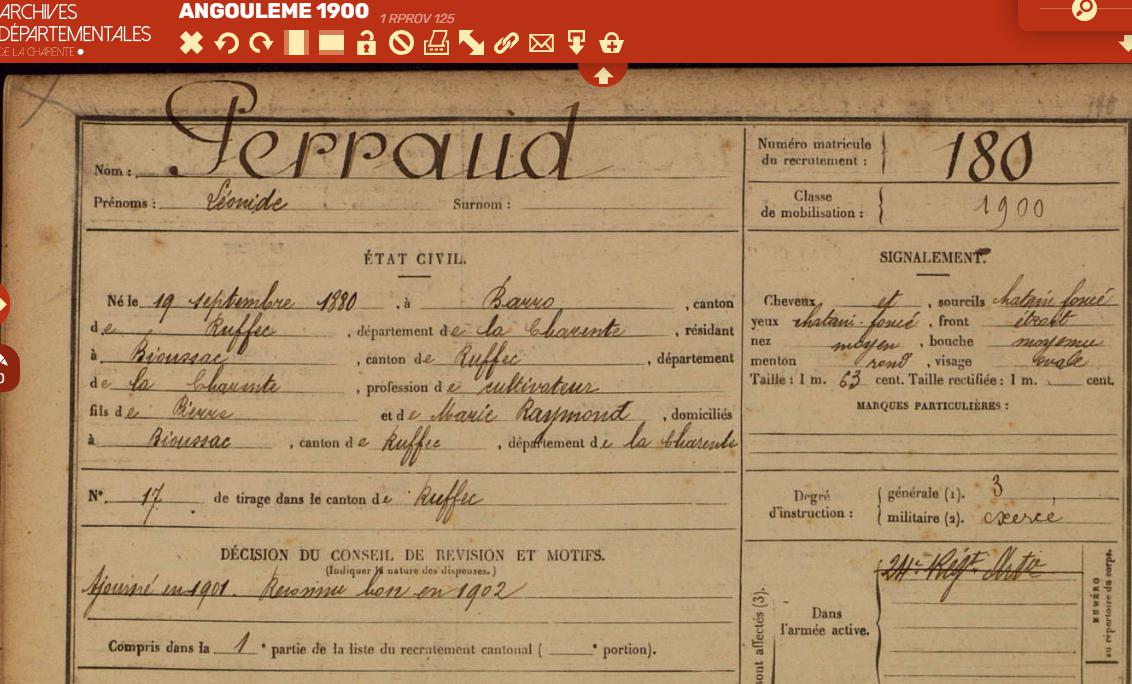 ARCHIVES
DÉPARTEMENTALES
DE LA CHARENTE
ANGOULEME 1900 1 RPROV 125
Nom : Perraud
Prénoms : Léonide Surnom :
Numéro matricule
du recrutement : 180
Classe
de mobilisation : 1900
ÉTAT CIVIL.
Né le 19 septembre 1880, à Barro, canton
de Ruffec, département de la Charente, résidant
à Bioussac, canton de Ruffec, département
de la Charente, profession de cultivateur
fils de Pierre et de Marie Raymond, domiciliés
à Bioussac, canton de Ruffec, département de la Charente
N° 17 de tirage dans le canton de Ruffec
SIGNALEMENT.
Cheveux et, sourcils chatain foncé
yeux chatain-foncé, front étroit
nez moyen, bouche moyenne
menton rond, visage ovale
Taille : 1 m. 63 cent. Taille rectifiée : 1 m. cent.
MARQUES PARTICULIÈRES :
Degré
d'instruction :
générale (1). 3
militaire (2). exercé
DÉCISION DU CONSEIL DE REVISION ET MOTIFS.
(Indiquer la nature des dispenses.)
Ajourné en 1901. Reconnu bon en 1902
Compris dans la 1e partie de la liste du recrutement cantonal ( e portion).
Dans
l'armée active.
24e Régt Arto
sont affectés (3).
NUMÉRO
au répertoire du corps.